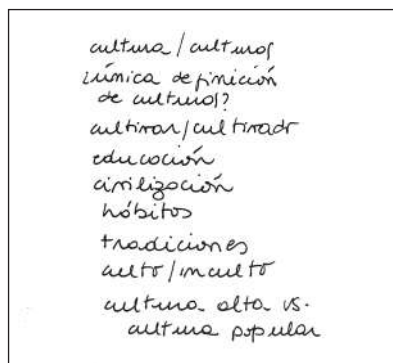 cultura / culturas
¿única definición
de culturas?
cultivar/cultivado
educación
civilización
hábitos
tradiciones
culto/inculto
cultura alta vs.
cultura popular